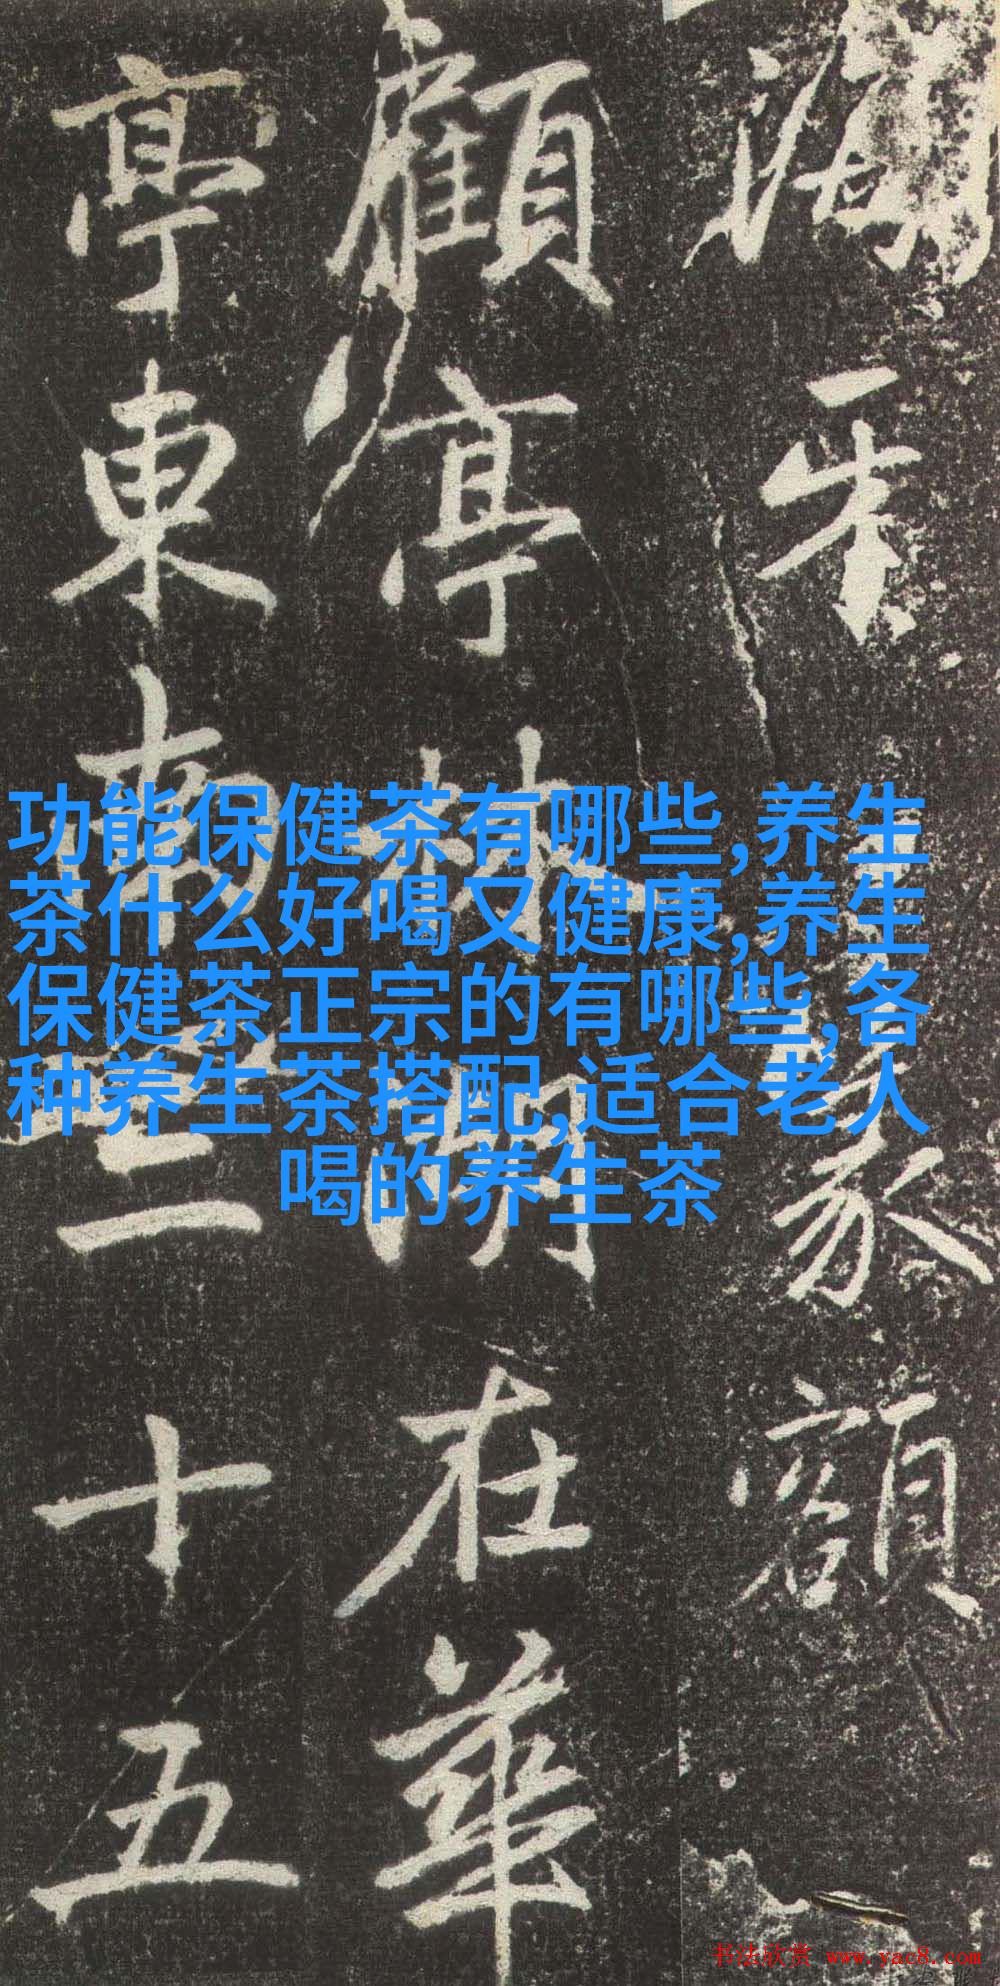 篆額
顧亭林湖在華
亭東南三十五
功能保健茶有哪些,养生
茶什么好喝又健康,养生
保健茶正宗的有哪些,各
种养生茶搭配,适合老人
喝的养生茶
书法欣赏 www.yac8.com